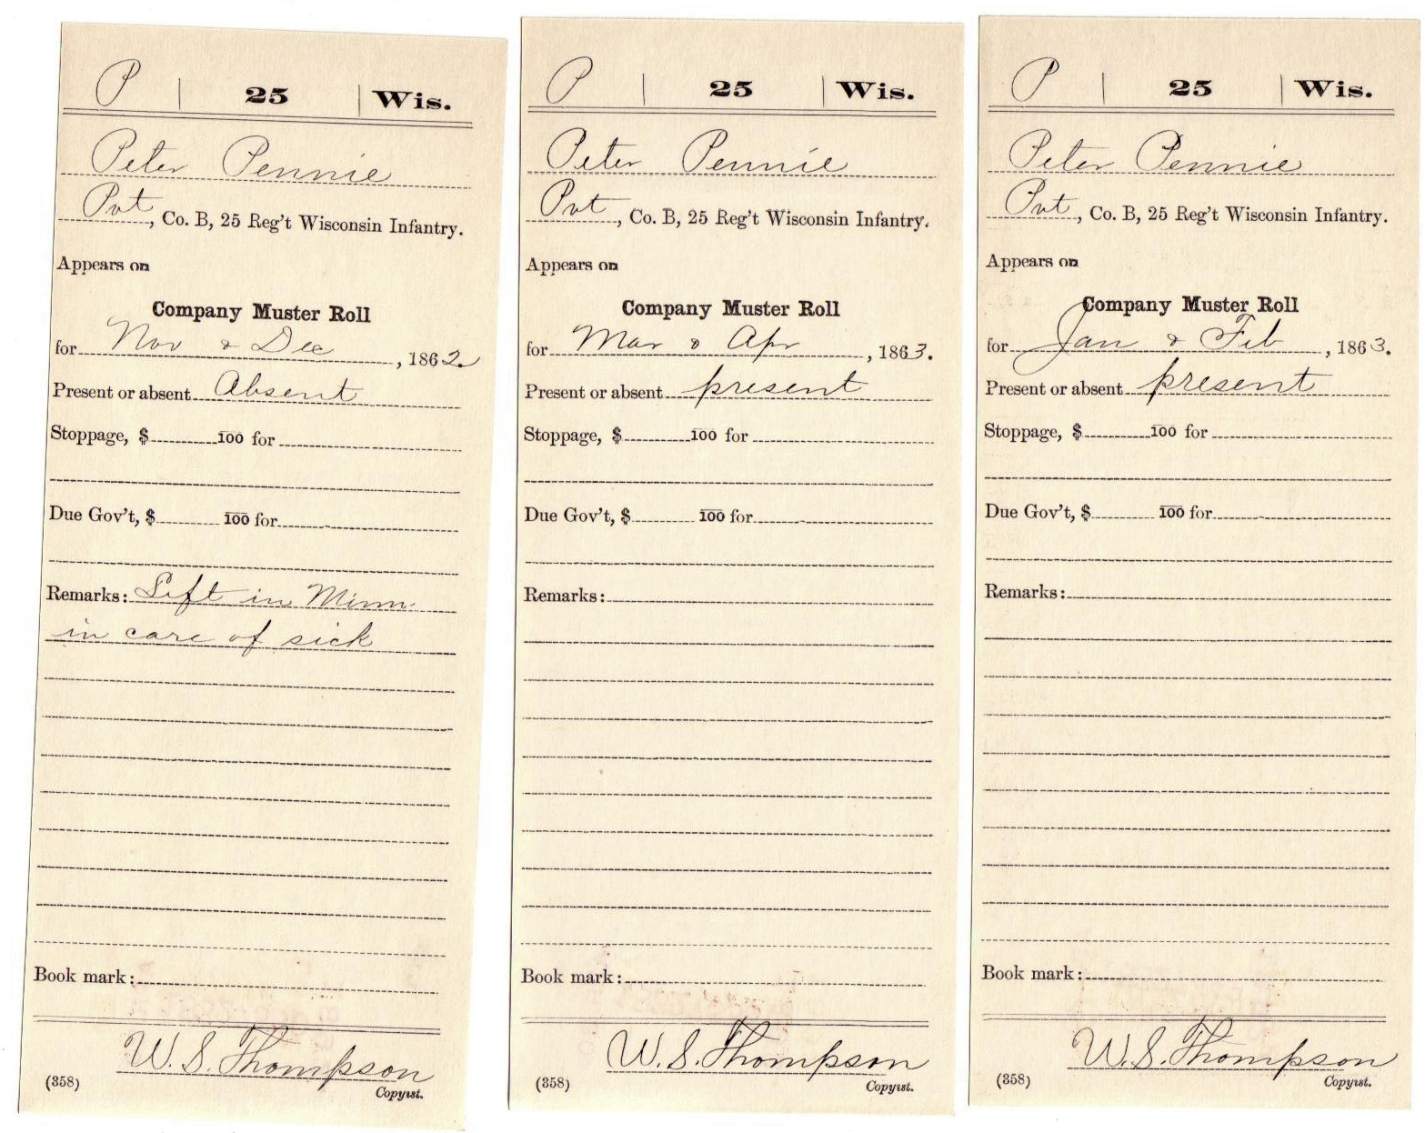 P | 25 | Wis.
Peter Pennie
Pvt, Co. B, 25 Reg't Wisconsin Infantry.
Appears on
Company Muster Roll
for Nov & Dec, 1862.
Present or absent Absent
Stoppage, $ 100 for
Due Gov't, $ 100 for
Remarks: Left in Minn.
in care of sick
Book mark:
W. S. Thompson
(358) Copyist.
P | 25 | Wis.
Peter Pennie
Pvt, Co. B, 25 Reg't Wisconsin Infantry.
Appears on
Company Muster Roll
for Mar & Apr, 1863.
Present or absent present
Stoppage, $ 100 for
Due Gov't, $ 100 for
Remarks:
Book mark:
W. S. Thompson
(358) Copyist.
P | 25 | Wis.
Peter Pennie
Pvt, Co. B, 25 Reg't Wisconsin Infantry.
Appears on
Company Muster Roll
for Jan & Feb, 1863.
Present or absent present
Stoppage, $ 100 for
Due Gov't, $ 100 for
Remarks:
Book mark:
W. S. Thompson
(358) Copyist.